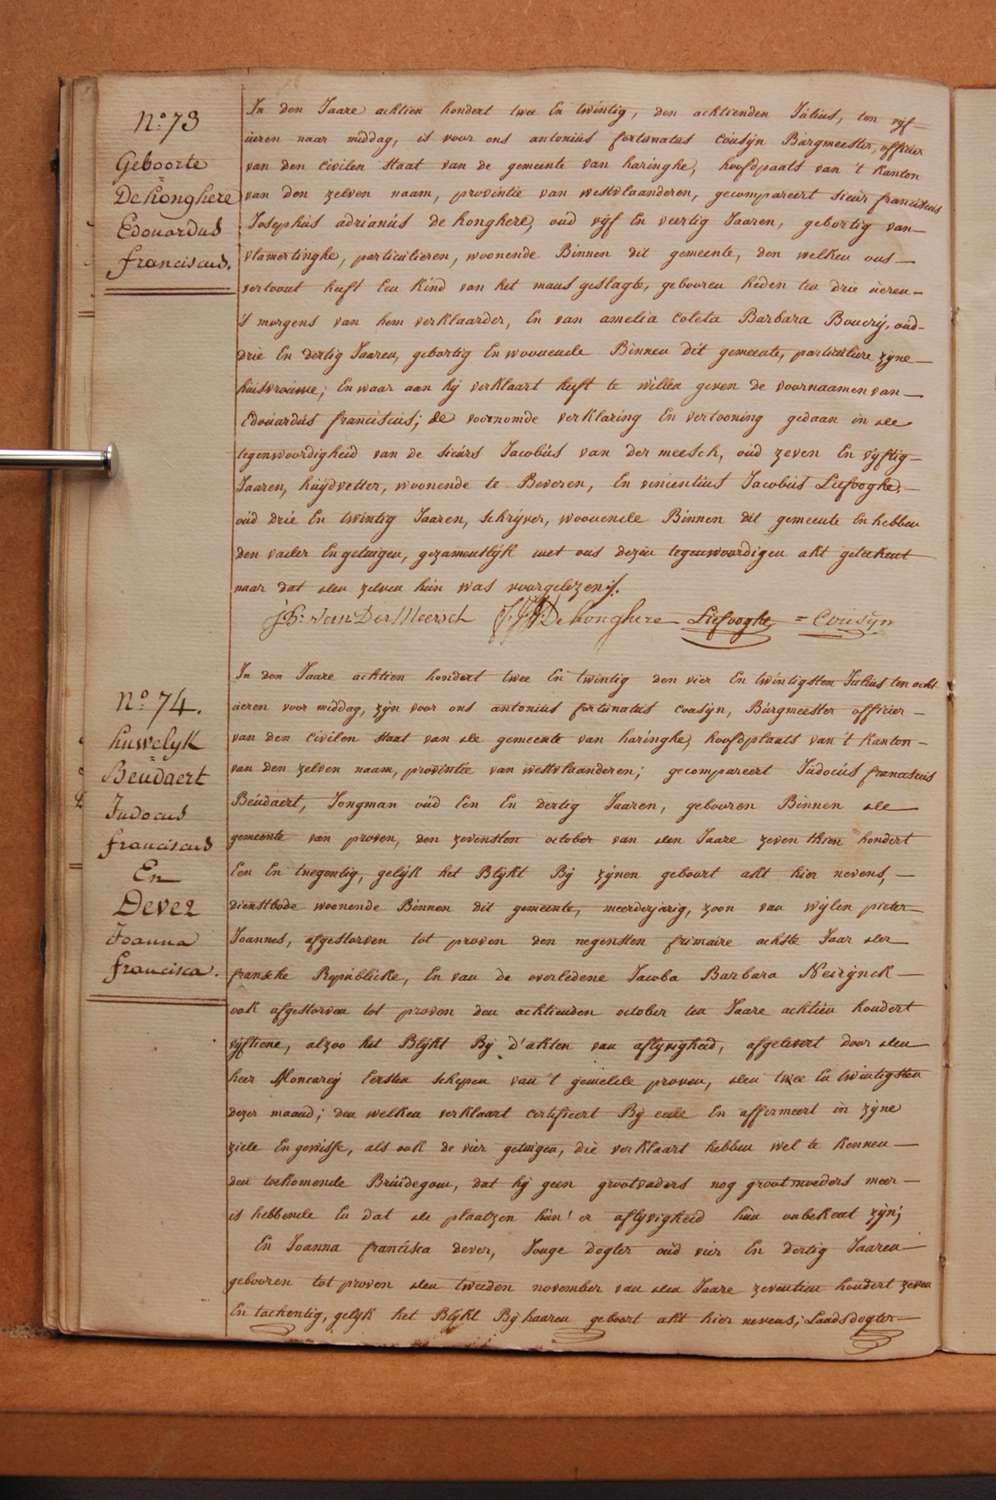 N.o 73
Geboorte
De honghere
Edouardus
franciscus.
In den Jaare achtien hondert twee En twintig, den achtienden Julius, ten vyf
ueren naar middag, is voor ons antonius fortunatus Cousyn Burgmeester, officier
van den Civilen Staat van de gemeente van haringhe, hoofdpaats van 't Kanton
van den zelven naam, provintie van westvlaanderen, gecompareert sieur franciscus
Josephus adrianus de honghere, oud vyf En veertig Jaaren, gebortig van
vlamertinghe, particulieren, woonende Binnen dit gemeente, den welken ons
vertoont heeft Een Kind van het mans geslagte, gebooren heden ten drie ueren
's morgens van hem verklaarder, En van amelia Coleta Barbara Boucry, oud
drie En dertig Jaaren, gebortig En woonende Binnen dit gemeente, particuliere zyne
huisvrouwe; En waar aan hy verklaart heeft te willen geven de voornaamen van
Edouardus franciscus; de voornomde verklaring En vertooning gedaan in de
tegenwoordigheid van de sieurs Jacobus van der meesch, oud zeven En vyftig
Jaaren, huydvetter, woonende te Beveren, En vincentius Jacobus Liefooghe,
oud drie En twintig Jaaren, schryver, woonende Binnen dit gemeente En hebben
den vader En getuigen, gezamentlyk met ons dezen tegenwoordigen akt geteekent
naar dat den zelven hun was voorgelezen./.
Js: Van Der Meersch De honghere Liefooghe = Cousyn
N.o 74.
huwelyk
Beudaert
Judocus
franciscus
En
Dever
Joanna
francisca.
In den Jaare achtien hondert twee En twintig den vier En twintigsten Julius ten acht
ueren voor middag, zyn voor ons antonius fortunatus cousyn, Burgmeester officier
van den Civilen Staat van de gemeente van haringhe, hoofdplaats van 't Kanton
van den zelven naam, provintie van westvlaanderen; gecompareert Judocus franciscus
Beudaert, Jongman oud Een En dertig Jaaren, gebooren Binnen de
gemeente van proven, den zevensten october van den Jaare zeven thien hondert
Een En tnegentig, gelyk het Blykt By zynen geboort akt hier nevens,
dienstbode woonende Binnen dit gemeente, meerderjarig, zoon van wylen pieter
Joannes, afgestorven tot proven den negensten frimaire achste Jaar der
fransche Republicke, En van de overledene Jacoba Barbara Neirynck
ook afgestorven tot proven den achtienden october ten Jaare achtien hondert
vyftiene, alzoo het Blykt By d'akten van aflyvigheid, afgelevert door den
heer Moncarey Eersten schepen van 't gemelde proven, den twee En twintigsten
dezer maand; den welken verklaart certifieert By eede En affirmeert in zyne
ziele En gewisse, als ook de vier getuigen, die verklaart hebben wel te kennen
den toekomende Bruidegom, dat hy geen grootvaders nog grootmoeders meer
is hebbende En dat de plaatzen hun'er aflyvigheid hun onbekent zyn;
En Joanna francisca dever, Jonge dogter oud vier En dertig Jaaren
gebooren tot proven den tweeden november van den Jaare zeventien hondert zeven
En tachentig, gelyk het Blykt By haaren geboort akt hier nevens; Laadsdogter